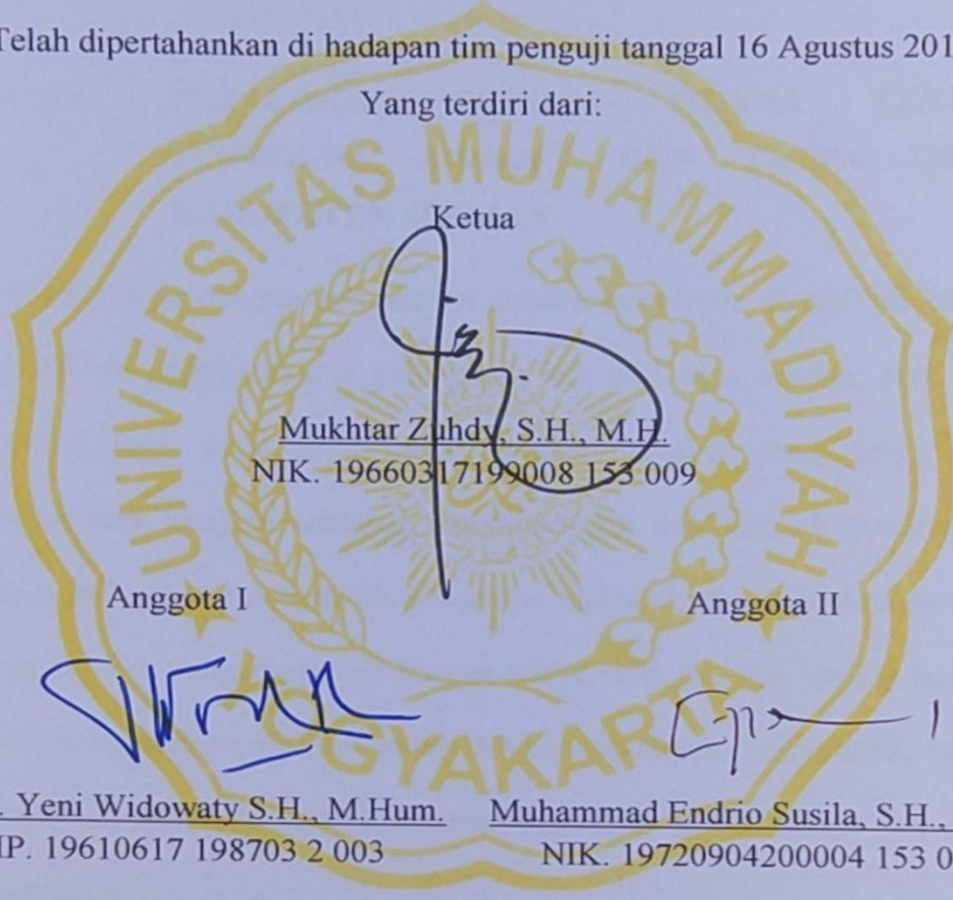 Telah dipertahankan di hadapan tim penguji tanggal 16 Agustus 201
Yang terdiri dari:
UNIVERSITAS MUHAMMADIYAH
YOGYAKARTA
Ketua
Mukhtar Zuhdy, S.H., M.H.
NIK. 19660317199008 153 009
Anggota I
Anggota II
. Yeni Widowaty S.H., M.Hum.
Muhammad Endrio Susila, S.H.,
IP. 19610617 198703 2 003
NIK. 19720904200004 153 0